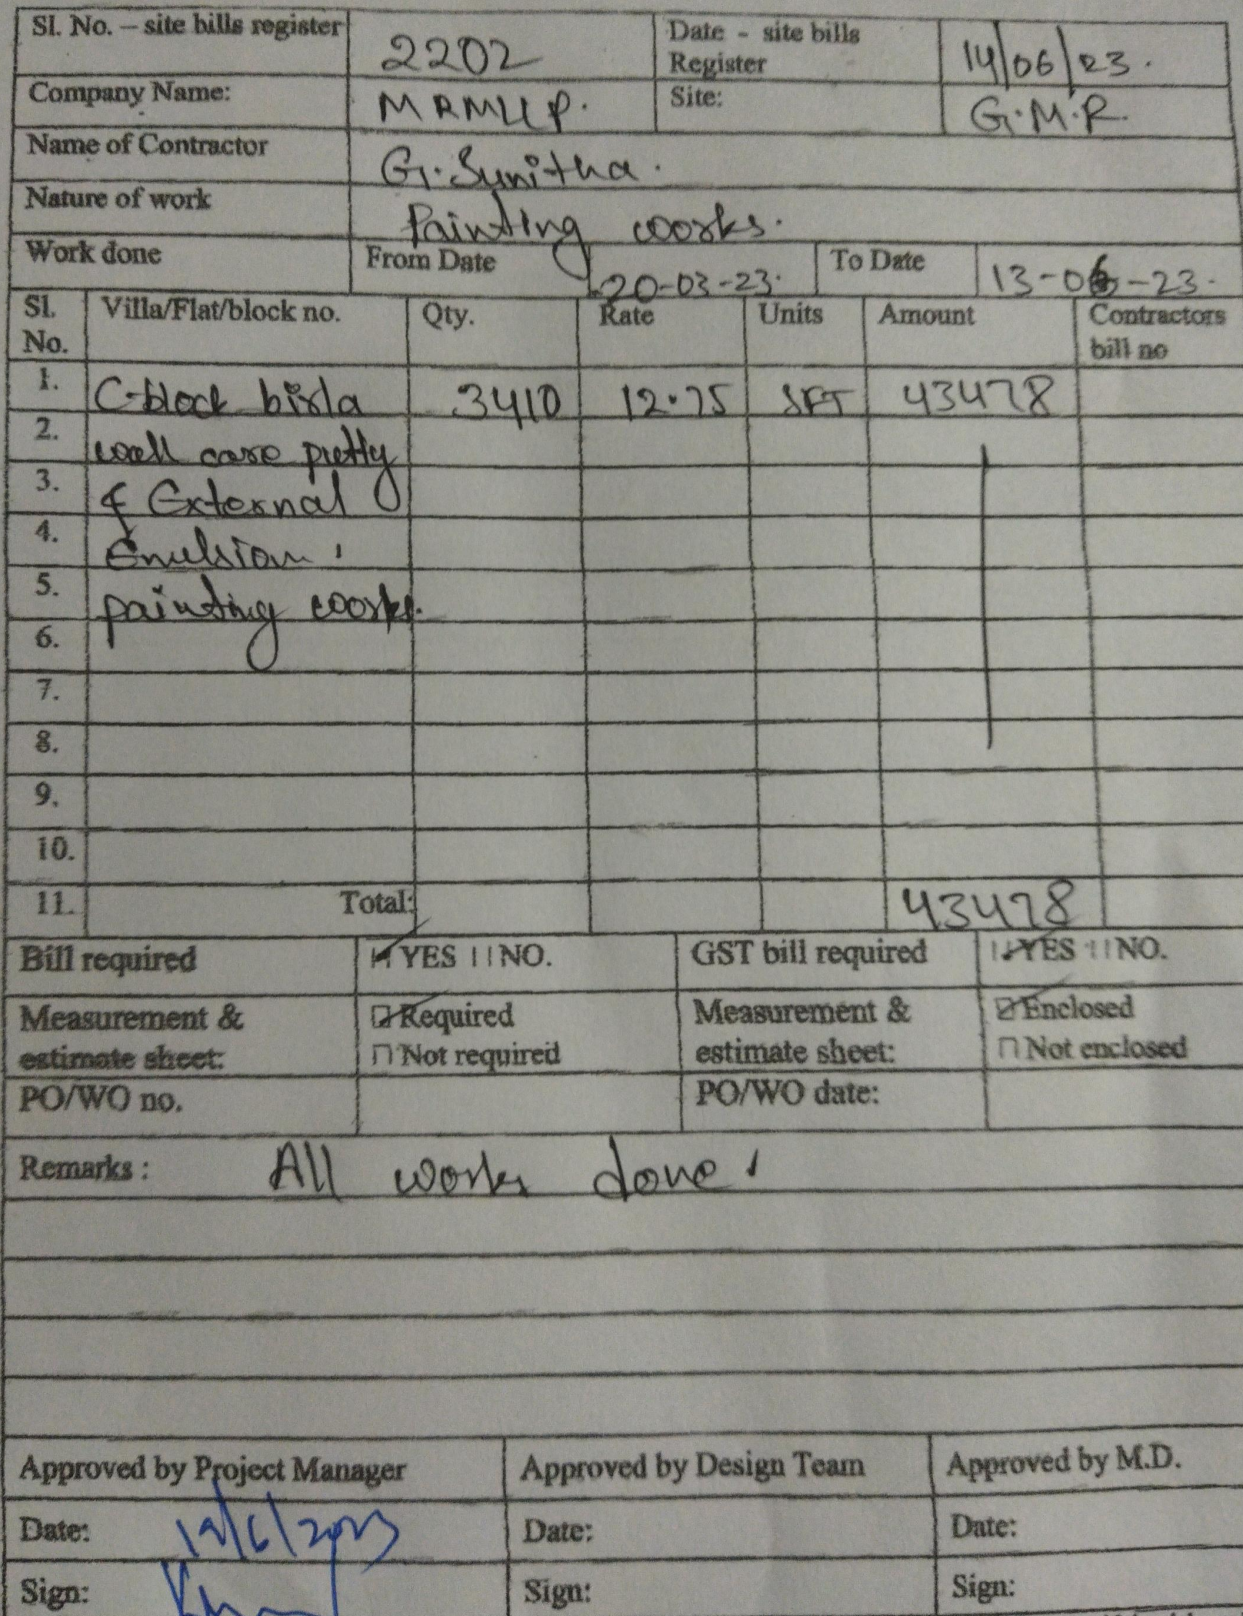 Sl. No. – site bills register 2202 Date - site bills Register 14/06/23.
Company Name: MRMLLP. Site: G.M.R.
Name of Contractor G. Sunitha.
Nature of work Painting works.
Work done From Date 20-03-23. To Date 13-06-23.
Sl. No. Villa/Flat/block no. Qty. Rate Units Amount Contractors bill no
1. C-block birla 3410 12.75 SFT 43478
2. wall care putty
3. & External
4. Emulsion.
5. painting works.
6.
7.
8.
9.
10.
11. Total: 43478
Bill required YES NO. GST bill required YES NO.
Measurement & estimate sheet: Required Measurement & estimate sheet: Enclosed
Not required Not enclosed
PO/WO no. PO/WO date:
Remarks: All works done.
Approved by Project Manager Approved by Design Team Approved by M.D.
Date: Date: Date:
Sign: Sign: Sign: